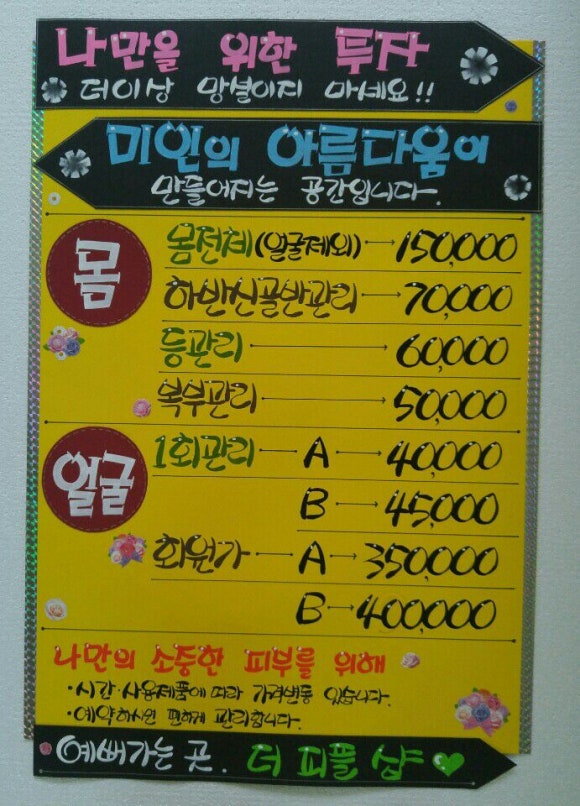 나만을 위한 투자
더이상 망설이지 마세요!!
미인의 아름다움이
만들어지는 공간입니다.
몸
몸전체(얼굴제외) → 150,000
하반신골반관리 → 70,000
등관리 → 60,000
복부관리 → 50,000
얼굴
1회관리 → A → 40,000
B → 45,000
회원가 → A → 350,000
B → 400,000
나만의 소중한 피부를 위해
·시간·사용제품에 따라 가격변동 있습니다.
·예약하시면 편하게 관리합니다.
예뻐가는 곳. 더 피플 샵